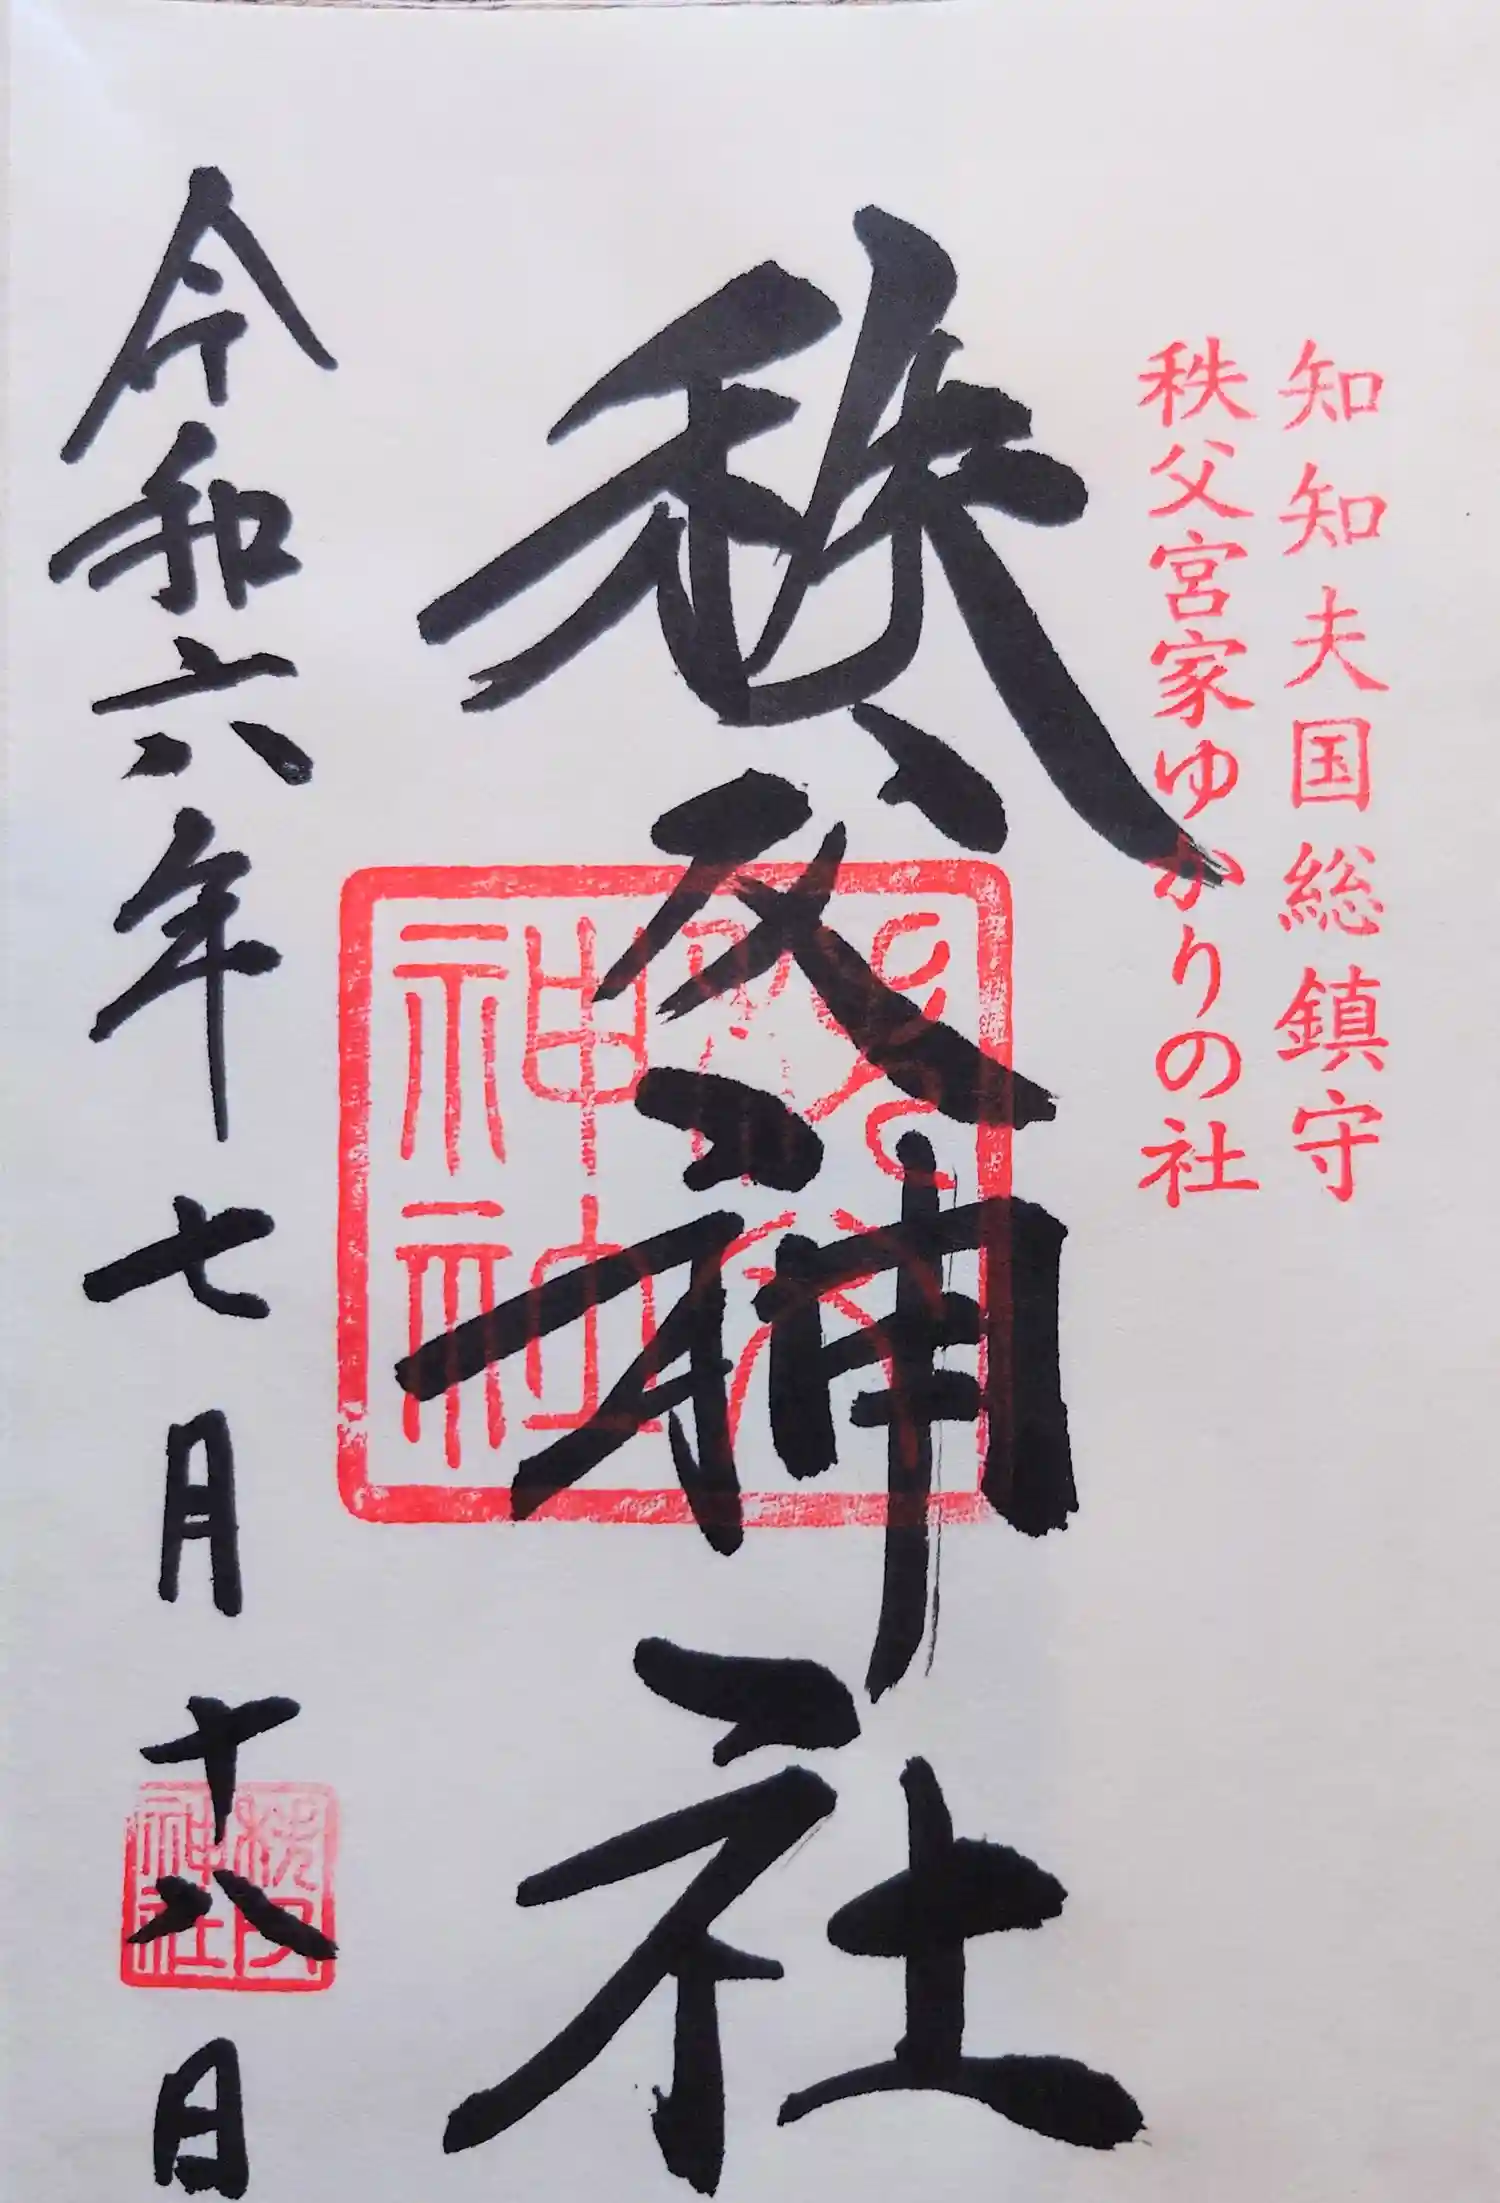 知知夫国総鎮守
秩父宮家ゆかりの社
秩父神社
秩父神社
令和六年七月十八日
秩父神社